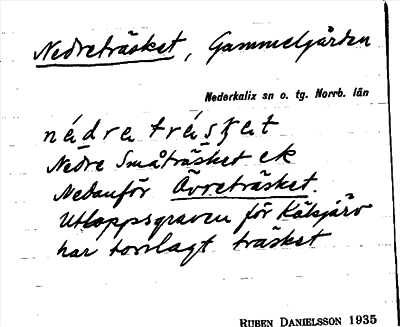 Nedreträsket, Gammelgården
Nederkalix sn o. tg. Norrb. län
nédre träsket
Nedre Småträsket ek
Nedanför Övreträsket.
Utloppsgraven för Kälsjärv
har torrlagt träsket
RUBEN DANIELSSON 1935